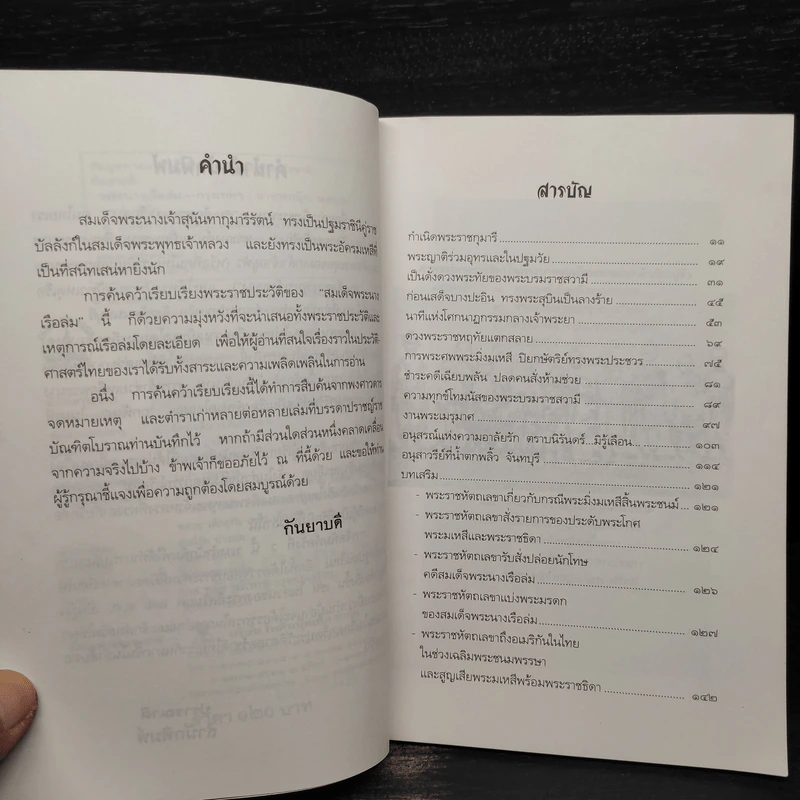 คำนำ
สมเด็จพระนางเจ้าสุนันทากุมารีรัตน์ ทรงเป็นปฐมราชินีคู่ราช
บัลลังก์ในสมเด็จพระพุทธเจ้าหลวง และยังทรงเป็นพระอัครมเหสีที่
เป็นที่สนิทเสน่หายิ่งนัก
การค้นคว้าเรียบเรียงพระราชประวัติของ "สมเด็จพระนาง
เรือล่ม" นี้ ก็ด้วยความมุ่งหวังที่จะนำเสนอทั้งพระราชประวัติและ
เหตุการณ์เรือล่มโดยละเอียด เพื่อให้ผู้อ่านที่สนใจเรื่องราวในประวัติ-
ศาสตร์ไทยของเราได้รับทั้งสาระและความเพลิดเพลินในการอ่าน
อนึ่ง การค้นคว้าเรียบเรียงนี้ได้ทำการสืบค้นจากพงศาวดาร
จดหมายเหตุ และตำราเก่าหลายต่อหลายเล่มที่บรรดาปราชญ์ราช
บัณฑิตโบราณท่านบันทึกไว้ หากถ้ามีส่วนใดส่วนหนึ่งคลาดเคลื่อน
จากความจริงไปบ้าง ข้าพเจ้าก็ขออภัยไว้ ณ ที่นี้ด้วย และขอให้ท่าน
ผู้รู้กรุณาชี้แจงเพื่อความถูกต้องโดยสมบูรณ์ด้วย
กันยาบดี
สารบัญ
กำเนิดพระราชกุมารี ๑๑
พระญาติร่วมอุทรและในปฐมวัย ๑๙
เป็นดั่งดวงพระทัยของพระบรมราชสวามี ๓๑
ก่อนเสด็จบางปะอิน ทรงพระสุบินเป็นลางร้าย ๔๕
นาทีแห่งโศกนาฏกรรมกลางเจ้าพระยา ๕๓
ดวงพระราชหฤทัยแตกสลาย ๖๙
การพระศพพระมิ่งมเหสี ปิยกษัตริย์ทรงพระประชวร ๗๕
ชำระคดีเฉียบพลัน ปลดคนสั่งห้ามช่วย ๘๑
ความทุกข์โทมนัสของพระบรมราชสวามี ๘๙
งานพระเมรุมาศ ๙๗
อนุสรณ์แห่งความอาลัยรัก ตราบนิรันดร์...มิรู้เลือน ๑๐๓
อนุสาวรีย์ที่น้ำตกพลิ้ว จันทบุรี ๑๑๔
บทเสริม ๑๒๑
- พระราชหัตถเลขาเกี่ยวกับกรณีพระมิ่งมเหสีสิ้นพระชนม์ ๑๒๑
- พระราชหัตถเลขาสั่งรายการของประดับพระโกศ
พระมเหสีและพระราชธิดา ๑๒๔
- พระราชหัตถเลขารับสั่งปล่อยนักโทษ
คดีสมเด็จพระนางเรือล่ม ๑๒๖
- พระราชหัตถเลขาแบ่งพระมรดก
ของสมเด็จพระนางเรือล่ม ๑๒๗
- พระราชหัตถเลขาถึงอเมริกันในไทย
ในช่วงเฉลิมพระชนมพรรษา
และสูญเสียพระมเหสีพร้อมพระราชธิดา ๑๔๒